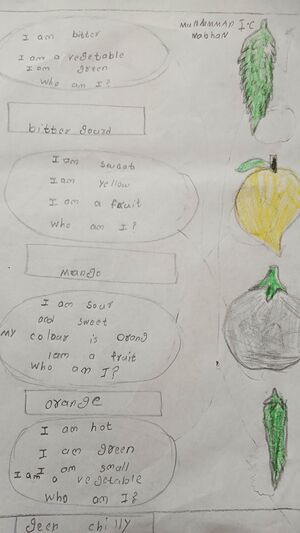 MUHAMMAD I.C
Nabhan
I am bitter
I am a vegetable
I am green
Who am I?
bitter gourd
I am sweet
I am yellow
I am a fruit
Who am I?
Mango
I am sour
and sweet
My colour is orang
I am a fruit
Who am I?
Orange
I am hot
I am green
I am small
I am a vegetable
Who am I?
geen chilly